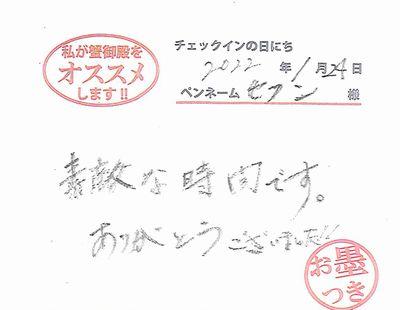 私が蟹御殿を
オススメ
します!!
チェックインの日にち
2022年1月24日
ペンネーム セブン 様
素敵な時間です。
ありがとうございました!!
お墨
つき